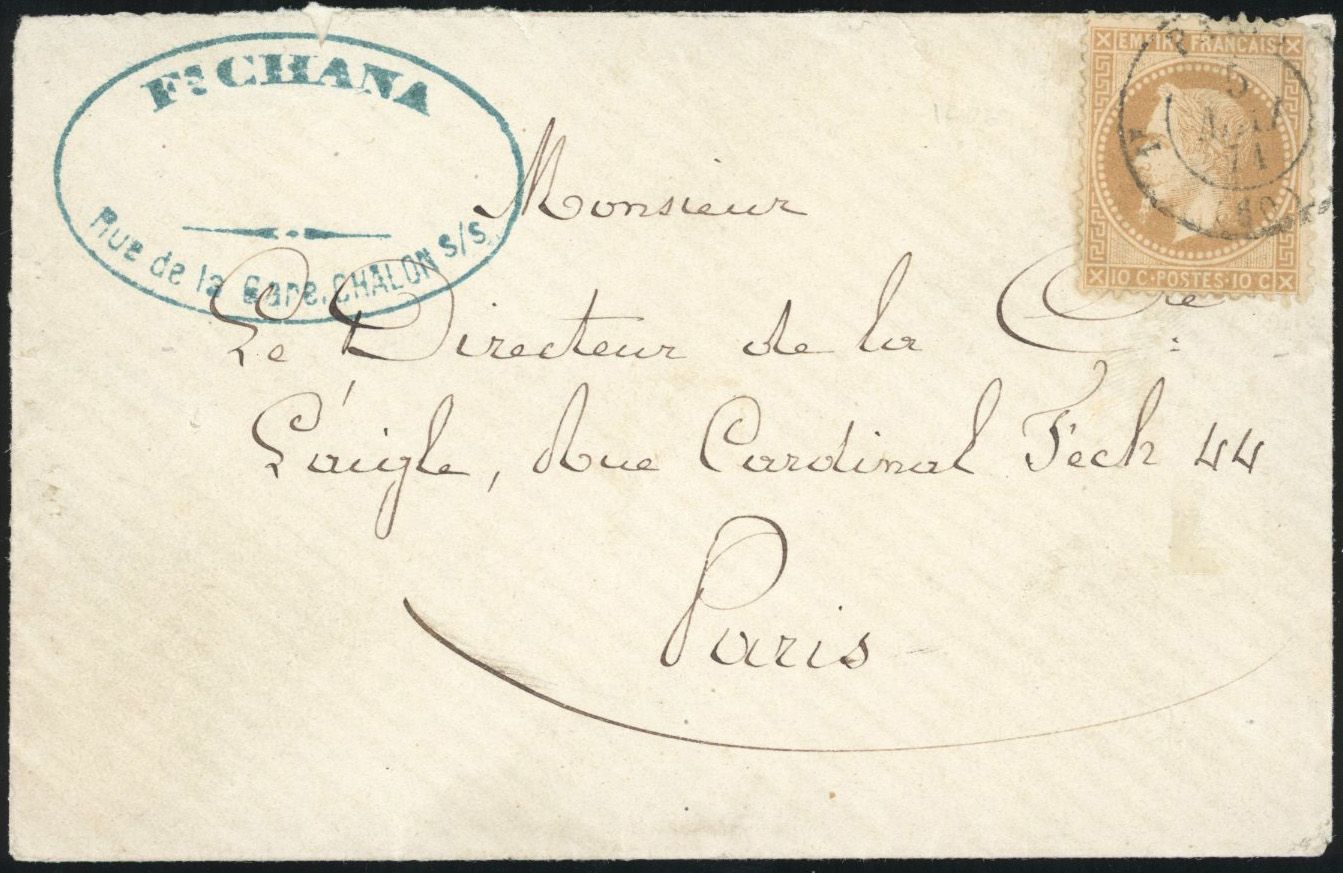 Fs CHANA
Rue de la Gare. CHALON s/s
EMPIRE FRANCAIS
PARIS
5
71
(60)
10 C·POSTES·10 C
Monsieur
Le Directeur de la Cie
L'aigle, Rue Cardinal Fech 44
Paris